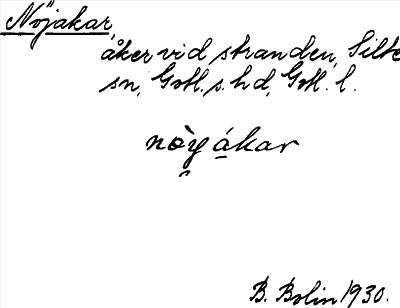 Nöjakar,
åker vid stranden, Silte
sn, Gotl. s. hd, Gotl. l.
nòy ákar
B. Bolin 1930.